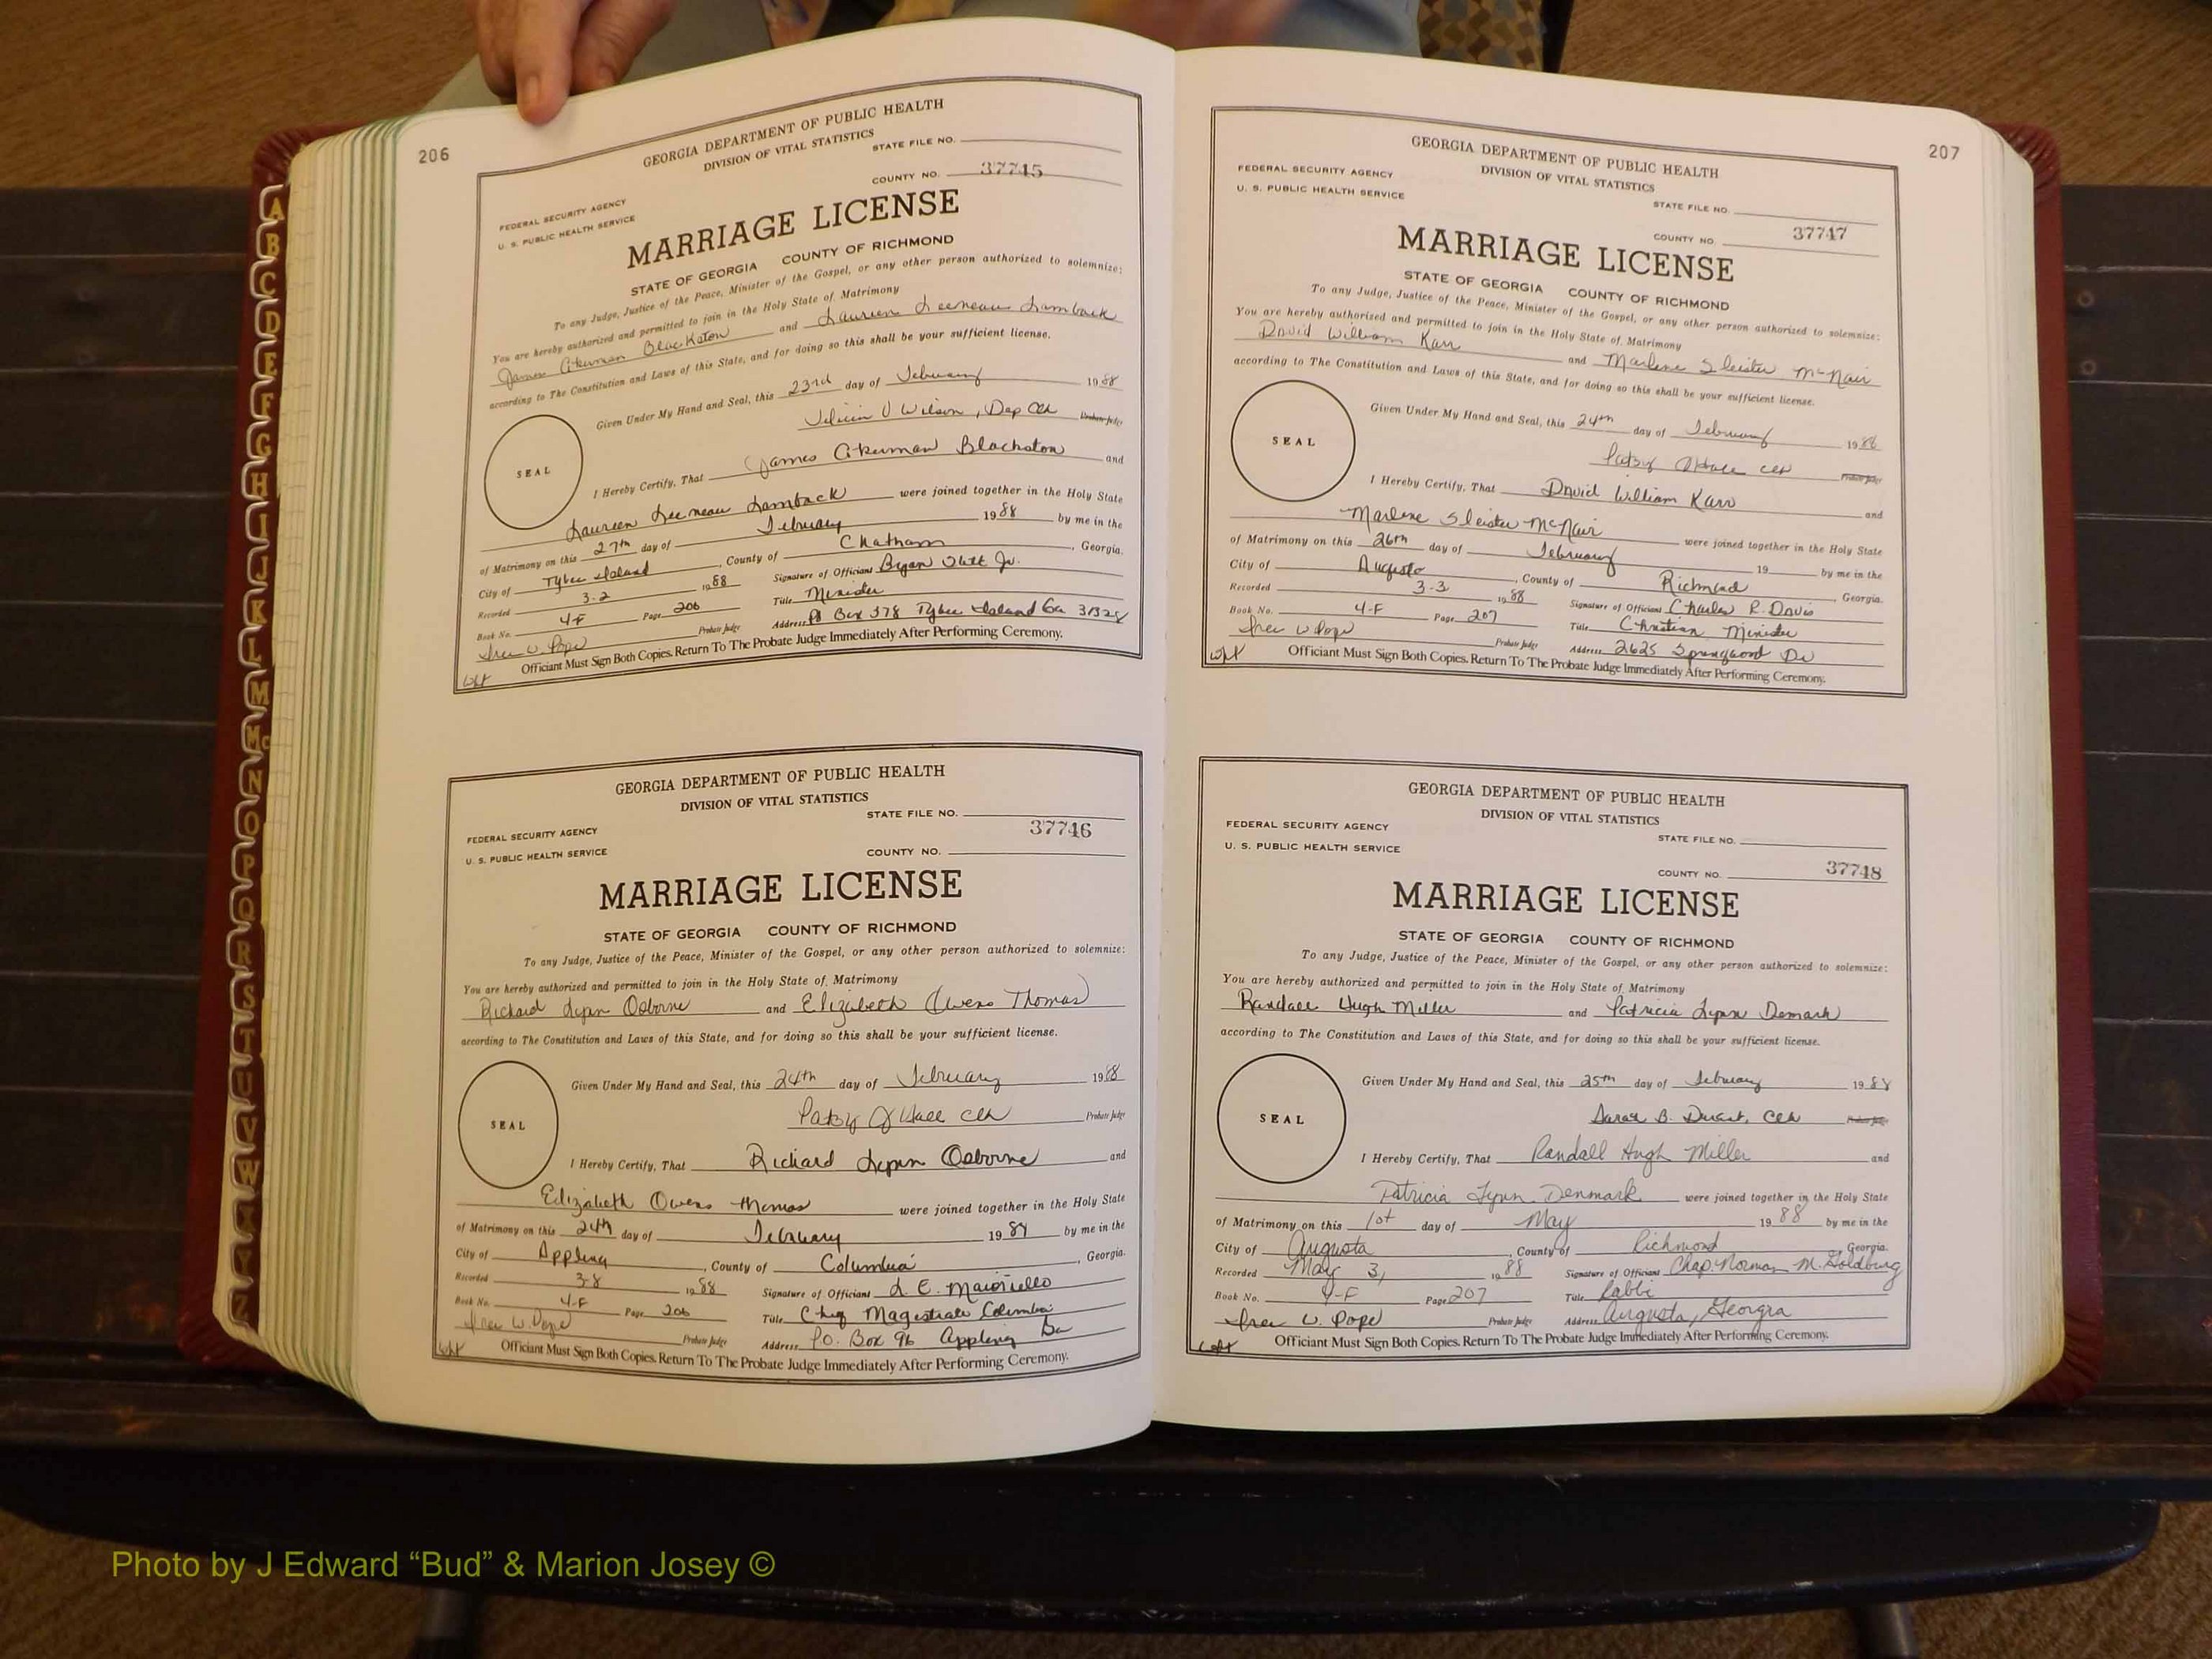 206
GEORGIA DEPARTMENT OF PUBLIC HEALTH
DIVISION OF VITAL STATISTICS
STATE FILE NO.
COUNTY NO. 37745
FEDERAL SECURITY AGENCY
U. S. PUBLIC HEALTH SERVICE
MARRIAGE LICENSE
STATE OF GEORGIA COUNTY OF RICHMOND
To any Judge, Justice of the Peace, Minister of the Gospel, or any other person authorized to solemnize:
You are hereby authorized and permitted to join in the Holy State of Matrimony
James Akerman Blackston and Laureen Leeneau Lamback
according to The Constitution and Laws of this State, and for doing so this shall be your sufficient license.
Given Under My Hand and Seal, this 23rd day of February 1988
Wilson, Dep Clk Probate Judge
SEAL
I Hereby Certify, That James Akerman Blackston and
Laureen Leeneau Lamback were joined together in the Holy State
of Matrimony on this 27th day of February 1988 by me in the
City of Tybee Island, County of Chatham, Georgia.
Recorded 3-2 1988 Signature of Officiant Bryan Jr.
Book No. 4-F Page 206 Title Minister
W. Pope Probate Judge Address PO Box 378 Tybee Island Ga 31328
Officiant Must Sign Both Copies. Return To The Probate Judge Immediately After Performing Ceremony.
GEORGIA DEPARTMENT OF PUBLIC HEALTH
DIVISION OF VITAL STATISTICS
STATE FILE NO.
37746
FEDERAL SECURITY AGENCY
U. S. PUBLIC HEALTH SERVICE
COUNTY NO.
MARRIAGE LICENSE
STATE OF GEORGIA COUNTY OF RICHMOND
To any Judge, Justice of the Peace, Minister of the Gospel, or any other person authorized to solemnize:
You are hereby authorized and permitted to join in the Holy State of Matrimony
Richard Lynn Osborne and Elizabeth Owens Thomas
according to The Constitution and Laws of this State, and for doing so this shall be your sufficient license.
Given Under My Hand and Seal, this 24th day of February 1988
Patsy J Hall Clk Probate Judge
SEAL
I Hereby Certify, That Richard Lynn Osborne and
Elizabeth Owens Thomas were joined together in the Holy State
of Matrimony on this 24th day of February 19 by me in the
City of Appling, County of Columbia, Georgia.
Recorded 3-8 1988 Signature of Officiant
Book No. 4-F Page 206 Title Chief Magistrate Columbia
W. Pope Probate Judge Address P.O. Box 96 Appling Ga
Officiant Must Sign Both Copies. Return To The Probate Judge Immediately After Performing Ceremony.
207
GEORGIA DEPARTMENT OF PUBLIC HEALTH
DIVISION OF VITAL STATISTICS
FEDERAL SECURITY AGENCY
U. S. PUBLIC HEALTH SERVICE
STATE FILE NO.
COUNTY NO. 37747
MARRIAGE LICENSE
STATE OF GEORGIA COUNTY OF RICHMOND
To any Judge, Justice of the Peace, Minister of the Gospel, or any other person authorized to solemnize:
You are hereby authorized and permitted to join in the Holy State of Matrimony
David William Karr and Marlene Sleister McNair
according to The Constitution and Laws of this State, and for doing so this shall be your sufficient license.
Given Under My Hand and Seal, this 24th day of February 1988
Patsy J Hall Clk Probate Judge
SEAL
I Hereby Certify, That David William Karr and
Marlene Sleister McNair were joined together in the Holy State
of Matrimony on this 26th day of February 19 by me in the
City of Augusta, County of Richmond, Georgia.
Recorded 3-3 1988 Signature of Officiant Charles R. Davis
Book No. 4-F Page 207 Title Christian Minister
W Pope Probate Judge Address 2625 Springwood Dr
Officiant Must Sign Both Copies. Return To The Probate Judge Immediately After Performing Ceremony.
GEORGIA DEPARTMENT OF PUBLIC HEALTH
DIVISION OF VITAL STATISTICS
FEDERAL SECURITY AGENCY
U. S. PUBLIC HEALTH SERVICE
STATE FILE NO.
COUNTY NO. 37748
MARRIAGE LICENSE
STATE OF GEORGIA COUNTY OF RICHMOND
To any Judge, Justice of the Peace, Minister of the Gospel, or any other person authorized to solemnize:
You are hereby authorized and permitted to join in the Holy State of Matrimony
Randall Hugh Miller and Patricia Lynn Demark
according to The Constitution and Laws of this State, and for doing so this shall be your sufficient license.
Given Under My Hand and Seal, this 25th day of February 1988
Sarah B. Clk Probate Judge
SEAL
I Hereby Certify, That Randall Hugh Miller and
Patricia Lynn Denmark were joined together in the Holy State
of Matrimony on this 1st day of May 1988 by me in the
City of Augusta, County of Richmond, Georgia.
Recorded May 3, 1988 Signature of Officiant Chap. Norman M. Goldburg
Book No. 4-F Page 207 Title Rabbi
W. Pope Probate Judge Address Augusta, Georgia
Officiant Must Sign Both Copies. Return To The Probate Judge Immediately After Performing Ceremony.
A
B
C
D
E
F
G
H
I
J
K
L
M
Mc
N
O
P
Q
R
S
T
U
V
W
X
Y
Z
Photo by J Edward “Bud” & Marion Josey ©